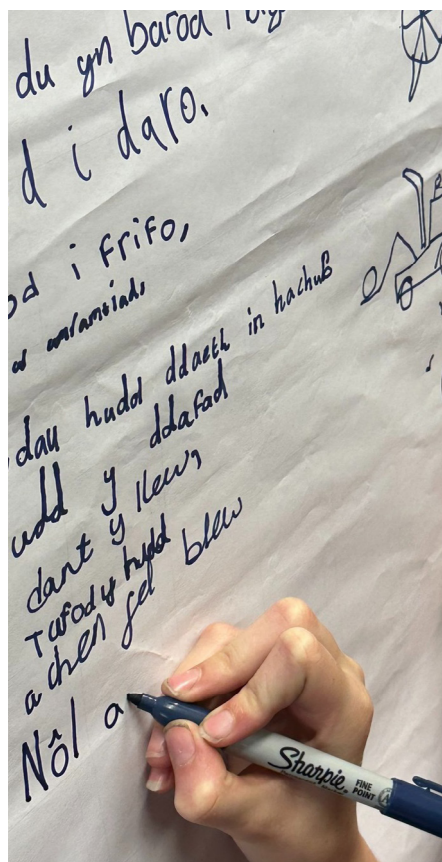 du yn barod i
d i daro.
od i frifo,
a
dau hudd ddaeth in hachub
udd y ddafad
dant y llew,
Tafod yr hydd
a chen fel blew
Nôl a
Sharpie
FINE POINT